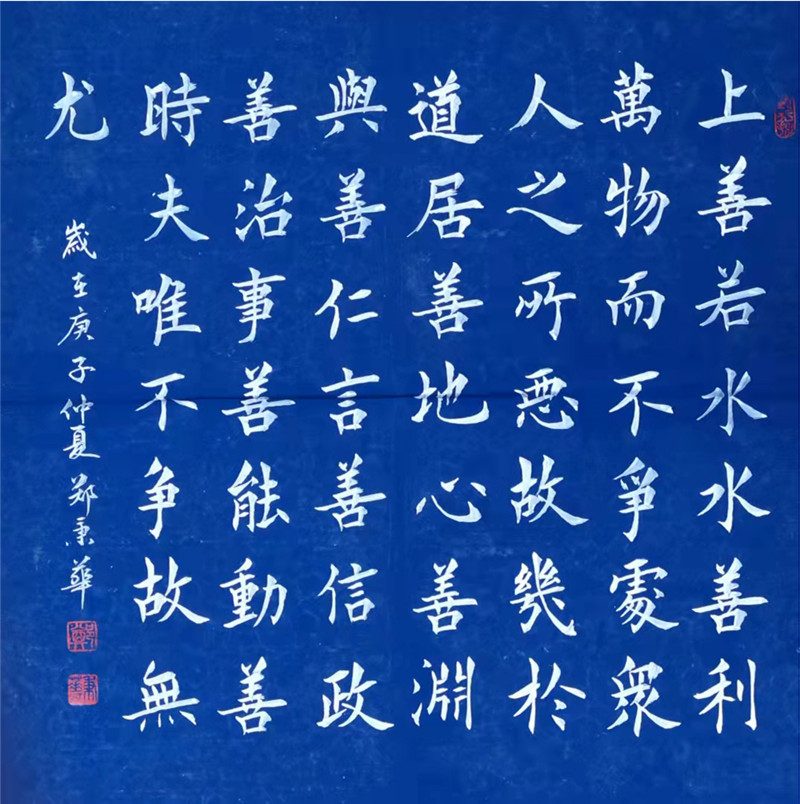 上善若水水善利
萬物而不爭處衆
人之所惡故幾於
道居善地心善淵
與善仁言善信政
善治事善能動善
時夫唯不争故無
尤
歲在庚子仲夏鄭秉華